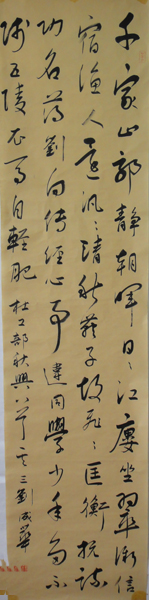 千家山郭静朝暉日〻江樓坐翠微信
宿漁人還汎〻清秋燕子故飛〻匡衡抗疏
功名薄劉向傳經心事違同學少年多不
賤五陵衣馬自輕肥 杜工部秋興八首之三劉成華